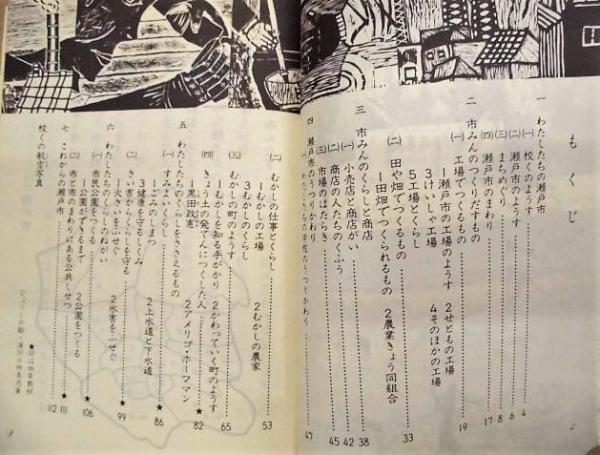 もくじ
一 わたしたちの瀬戸市
(一) 校くのようす 4
(二) 瀬戸市のようす 6
(三) まちめぐり 8
(四) 瀬戸市のまわり 17
二 市みんのつくりだすもの
(一) 工場でつくるもの 19
1 瀬戸市の工場のようす 2 せともの工場
3 けいしゃ工場 4 そのほかの工場
5 工場とくらし
(二) 田や畑でつくるもの 33
1 田畑でつくられるもの 2 農業きょう同組合
三 市みんのくらしと商店
(一) 小売店と商店がい 38
(二) 商店の人たちのくふう 42
(三) 市場のはたらき 45
四 瀬戸市のうつりかわり
(一) わたしたちの学校のうつりかわり 47
(二) むかしの仕事とくらし 53
1 むかしの工場 2 むかしの農家
3 むかしのくらし
(三) むかしの町のようす 65
1 むかしを知る手がかり 2 かわっていく町のようす
(四) きょう土の発てんにつくした人 ★ 82
1 黒田政憲 2 アメリゴ・ホーフマン
五 わたしたちのくらしをささえるもの
(一) すみよいくらし ★ 86
1 ごみのしまつ 2 上水道と下水道
3 健康を守るしくみ
(二) さい害からくらしを守る 99
1 火さいをふせぐ 2 水害をふせぐ
六 わたしたちのくらしのねがい
(一) 市民公園をつくる ★ 106
1 公園ができるまで 2 公園をつくる
(二) 市と市のまわりにある公共しせつ ★ 111
七 これからの瀬戸市 112
校くの航空写真
★印は